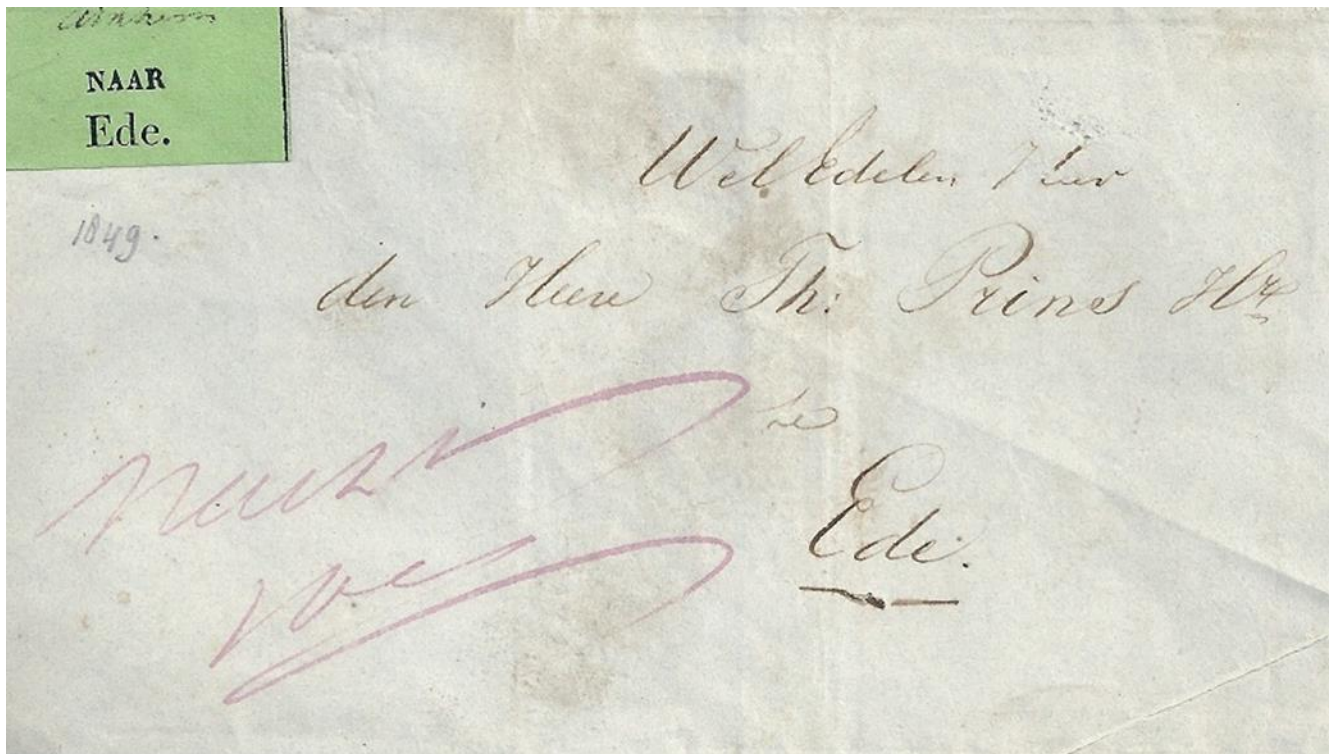 Arnhem
NAAR
Ede.
1849.
WelEdelen Heer
den Heere Th: Prins Hz
te
Ede.